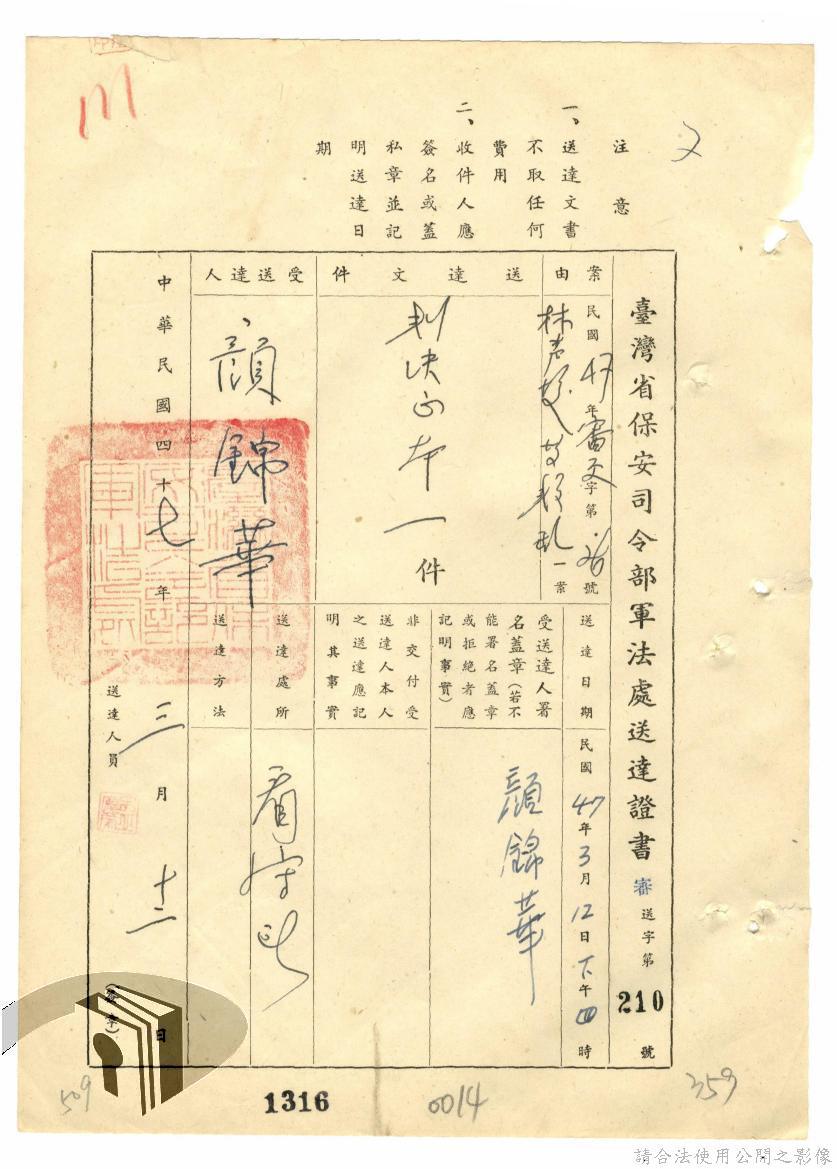 注意
一、送達文書
不取任何
費用
二、收件人應
簽名或蓋
私章並記
明送達日
期
臺灣省保安司令部軍法處送達證書
審送字第210號
案由
民國47年審文字第 號
林 叛亂一案
送達文件
判決正本一件
受送達人
顏錦華
送達日期
民國47年3月12日下午四時
受送達人署
名蓋章(若不
能署名蓋章
或拒絕者應
記明事實)
顏錦華
非交付受
送達人本人
之送達應記
明其事實
送達處所
看守所
送達方法
中華民國四十七年三月十二日
送達人員
(簽章)
509
1316
0014
359
請合法使用公開之影像